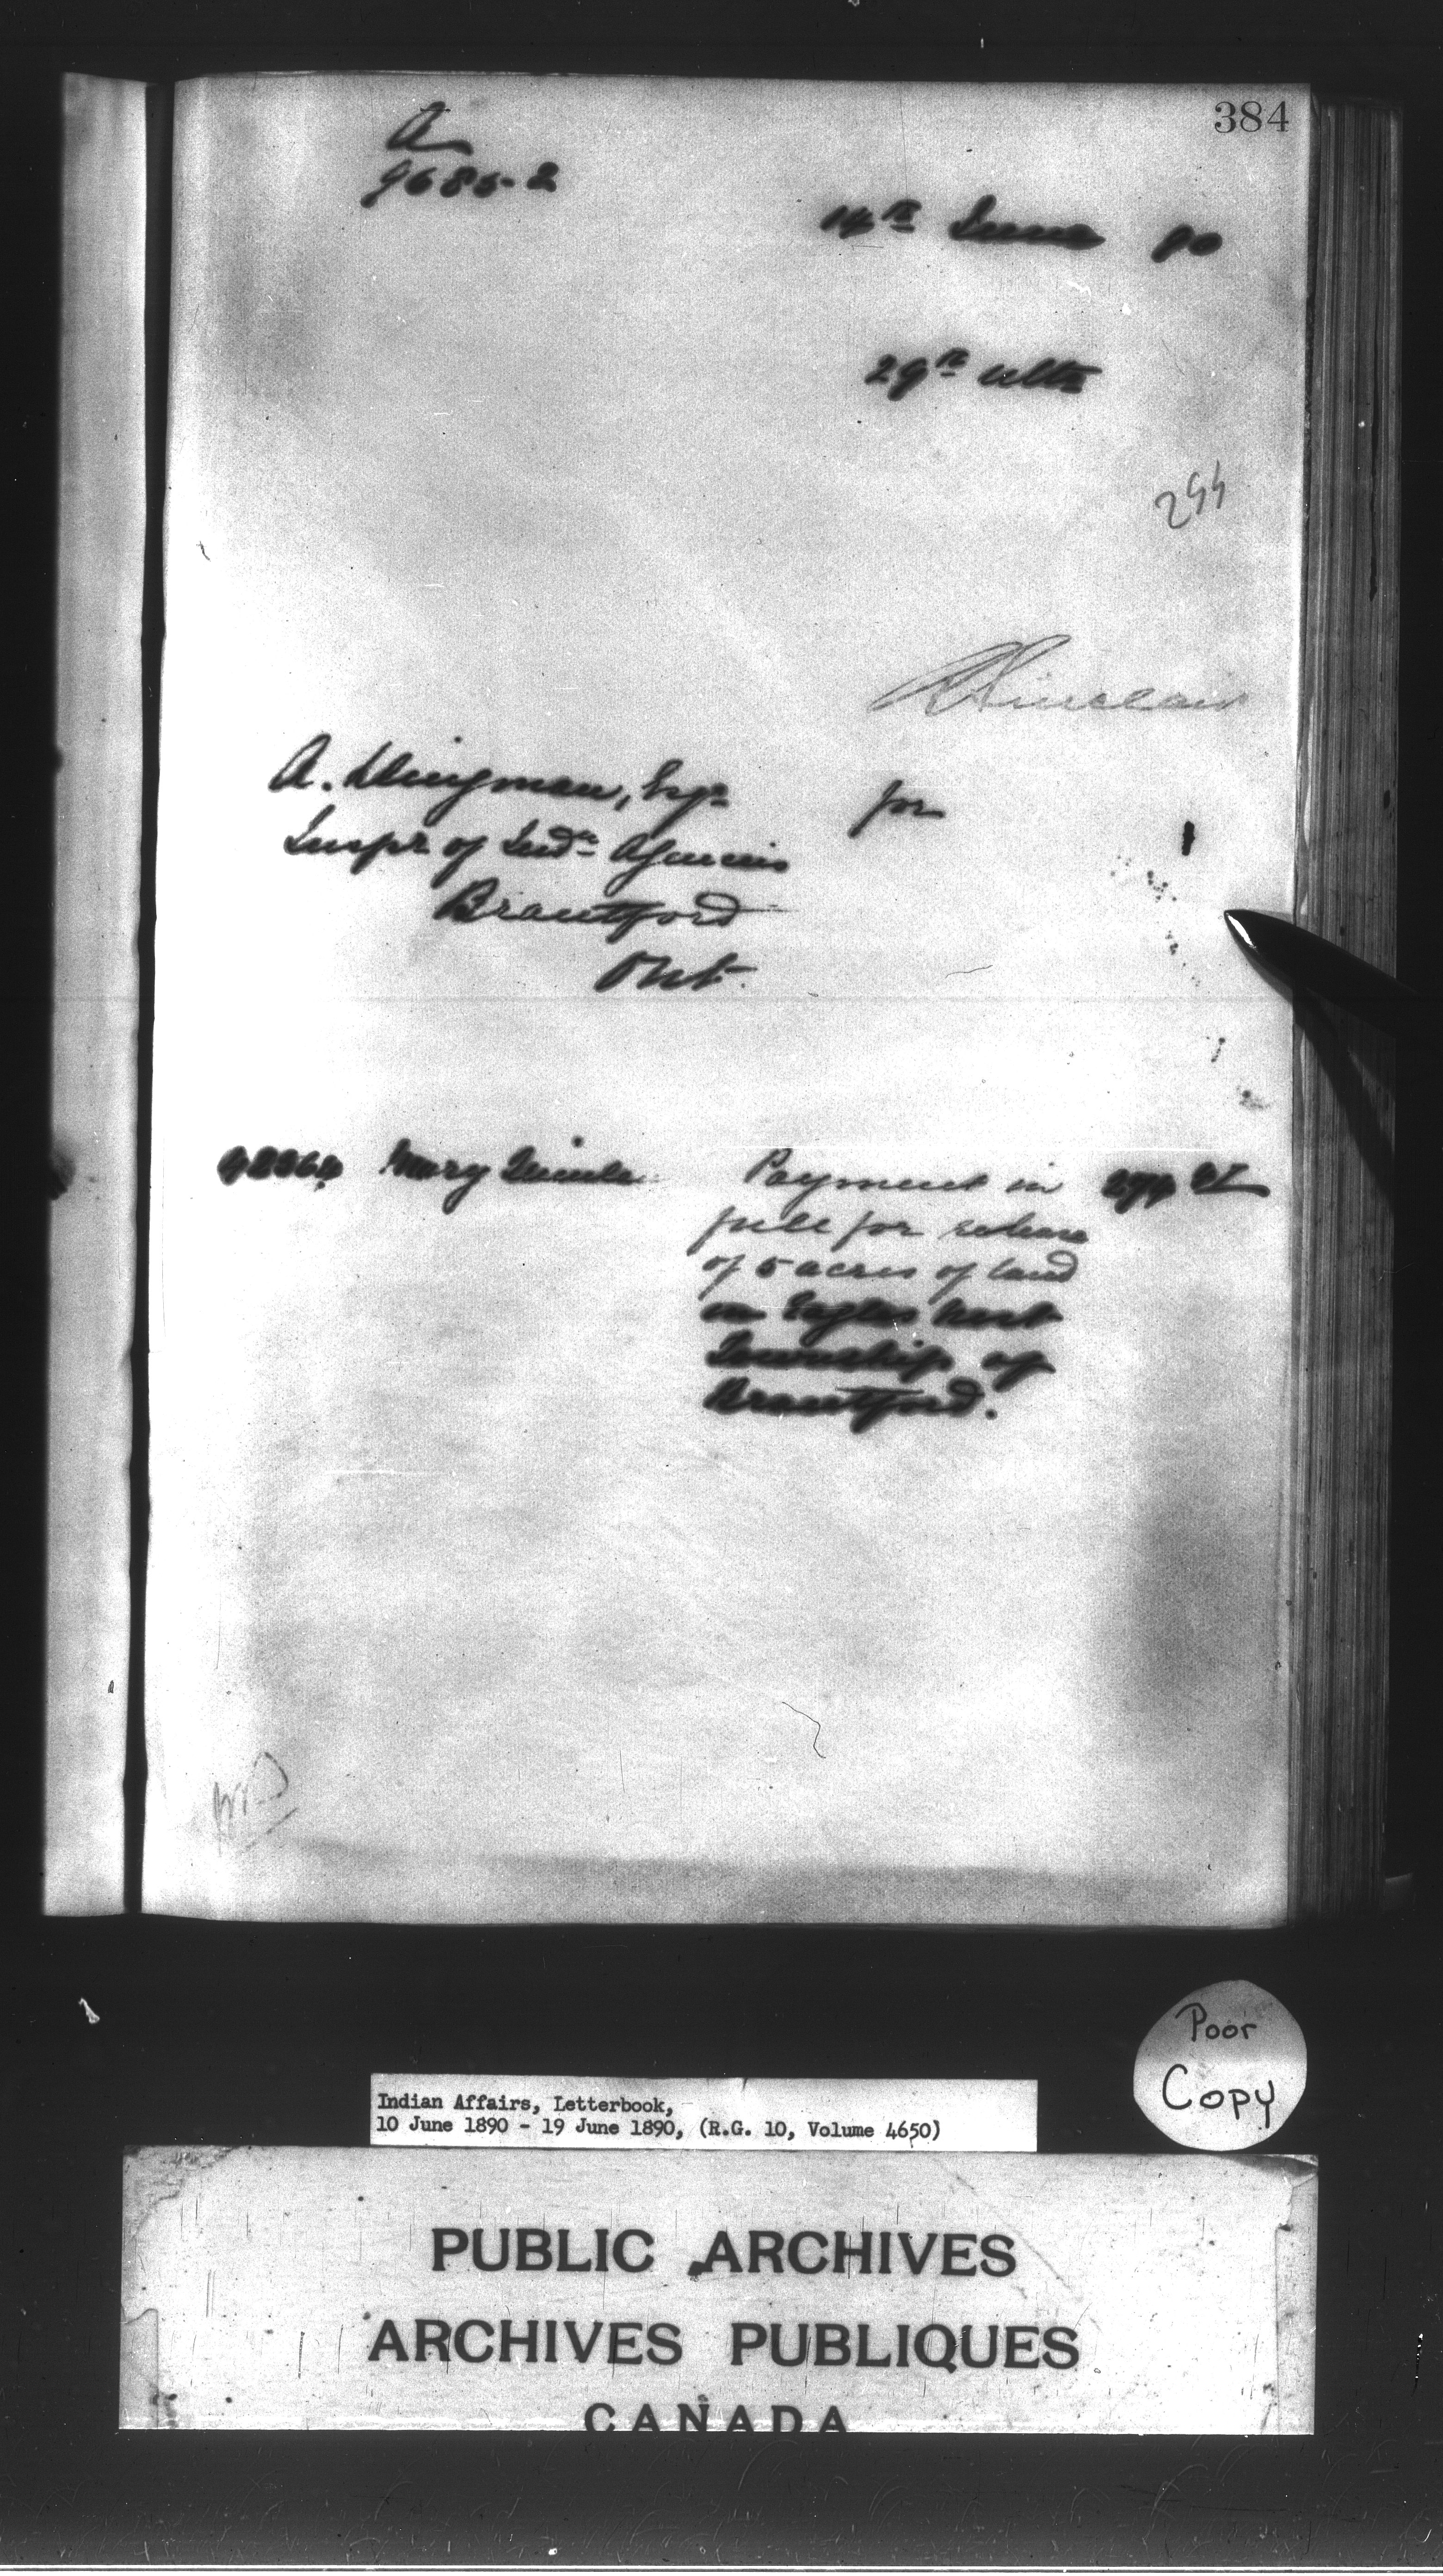 384
A
9685-2
14th June 90
29th ulto
244
Sinclair
A. Dingman, Esqr for
Inspr of Indn Agencies
Brantford
Ont.
Mary Payment in
full for release
of 5 acres of land
in Eagles Nest
Township of
Brantford.
Poor
Copy
Indian Affairs, Letterbook,
10 June 1890 - 19 June 1890, (R.G. 10, Volume 4650)
PUBLIC ARCHIVES
ARCHIVES PUBLIQUES
CANADA